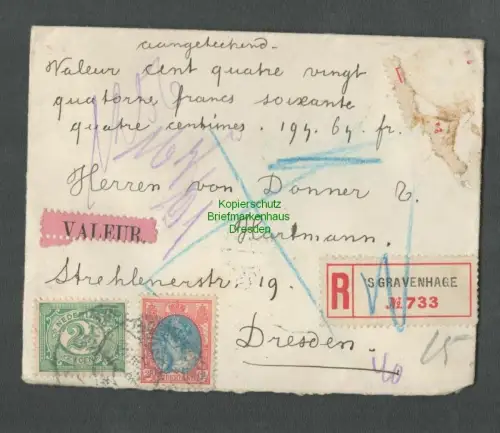 aangeteekend.
Valeur cent quatre vingt
quatorze francs soixante
quatre centimes. 194.64 fr.
Herren von Donner &
Kopierschutz
Briefmarkenhaus
Dresden
VALEUR.
Hartmann.
Strehlenerstr. 19.
R
'S GRAVENHAGE
№ 733
NEDERLAND
2½
CENT
Dresden.
15
40